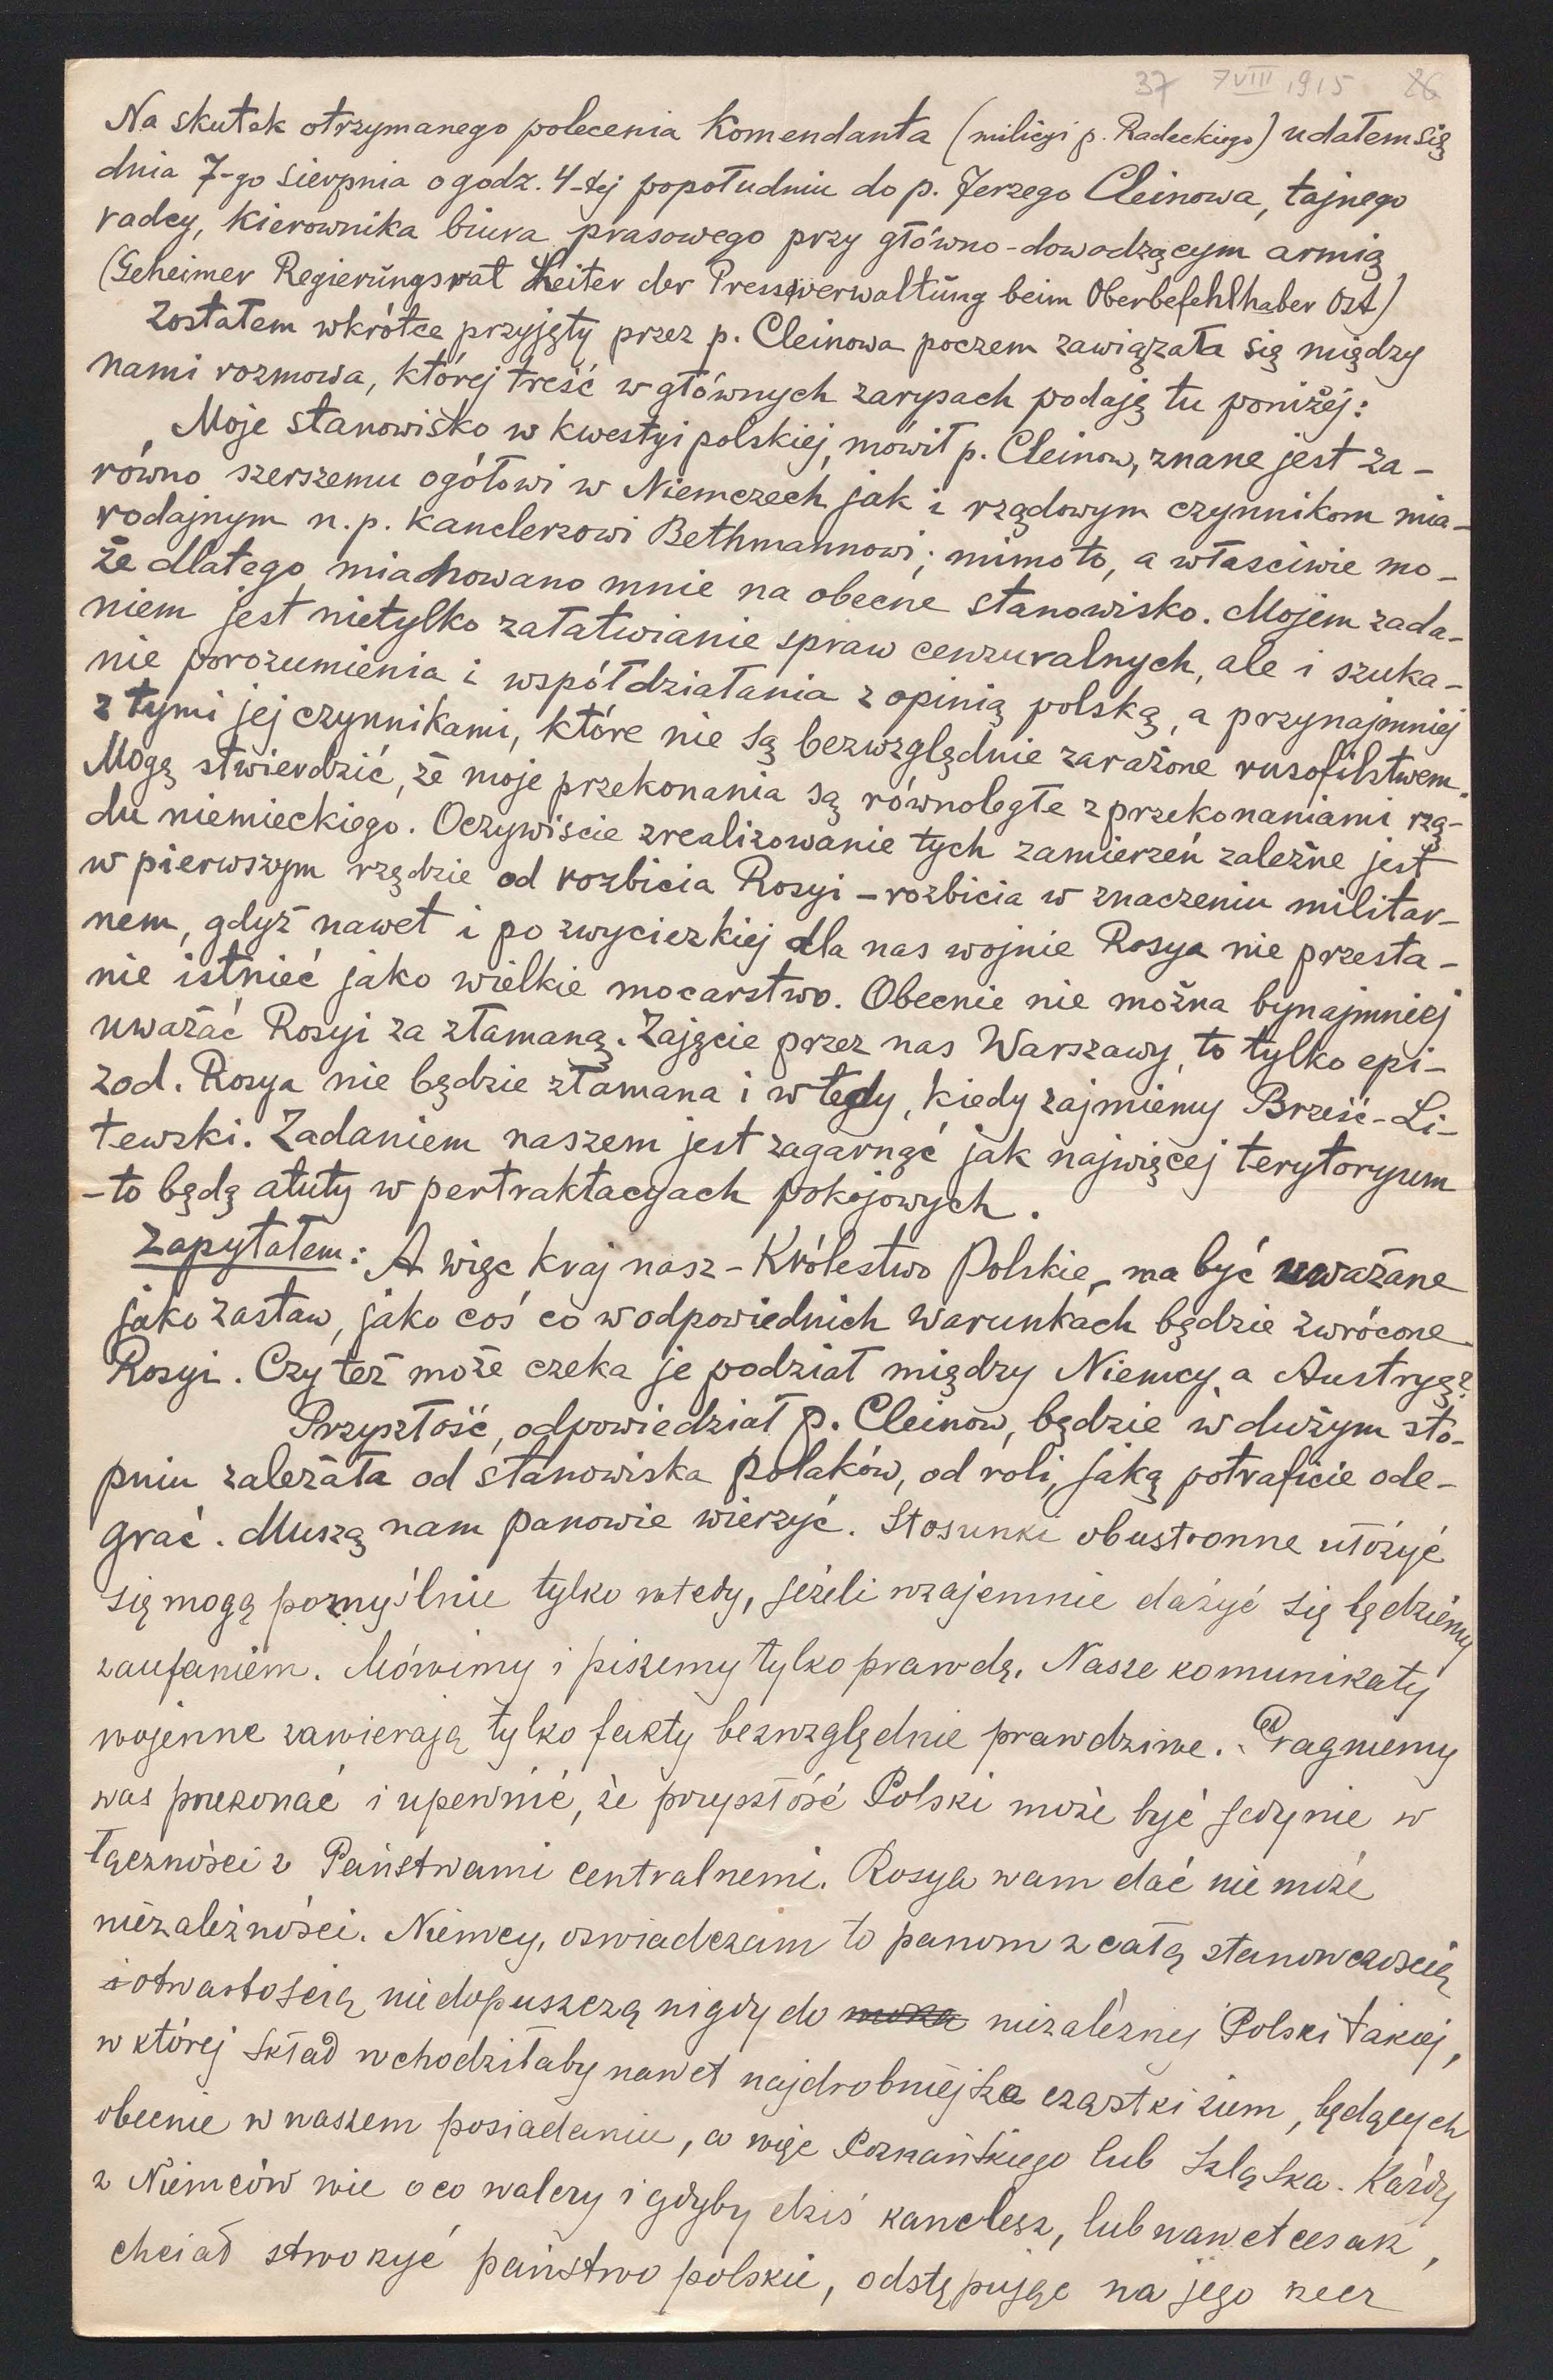 37 7VIII 1915 26
Na skutek otrzymanego polecenia Komendanta (milicyi p. Radeckiego) udałem się
dnia 7-go sierpnia o godz. 4-tej popołudniu do p. Jerzego Cleinowa, tajnego
radcy, kierownika biura prasowego przy główno-dowodzącym armią
(Geheimer Regierŭngsrat Leiter der Presseverwaltŭng beim Oberbefehlhaber Ost)
Zostałem wkrótce przyjęty przez p. Cleinowa poczem zawiązała się między
nami rozmowa, której treść w głównych zarysach podaję tu poniżej:
Moje stanowisko w kwestyi polskiej, mówił p. Cleinow, znane jest za-
równo szerszemu ogółowi w Niemczech jak i rządowym czynnikom mia-
rodajnym n.p. kanclerzowi Bethmannowi; mimo to, a właściwie mo-
że dlatego mianowano mnie na obecne stanowisko. Mojem zada-
niem jest nietylko załatwianie spraw cenzuralnych, ale i szuka-
nie porozumienia i współdziałania z opinią polską, a przynajmniej
z tymi jej czynnikami, które nie są bezwzględnie zarażone rusofilstwem.
Mogę stwierdzić, że moje przekonania są równoległe z przekonaniami rzą-
du niemieckiego. Oczywiście zrealizowanie tych zamierzeń zależne jest
w pierwszym rzędzie od rozbicia Rosyi – rozbicia w znaczeniu militar-
nem, gdyż nawet i po zwycięzkiej dla nas wojnie Rosya nie przesta-
nie istnieć jako wielkie mocarstwo. Obecnie nie można bynajmniej
uważać Rosyi za złamaną. Zajęcie przez nas Warszawy, to tylko epi-
zod. Rosya nie będzie złamana i wtedy, kiedy zajmiemy Brześć-Li-
tewski. Zadaniem naszem jest zagarnąć jak najwięcej terytoryum
-to będą atuty w pertraktacyach pokojowych.
Zapytałem: A więc kraj nasz – Królestwo Polskie – ma być uważane
jako zastaw, jako coś co w odpowiednich warunkach będzie zwrócone
Rosyi. Czy też może czeka je podział między Niemcy a Austryę?
Przyszłość, odpowiedział p. Cleinow, będzie w dużym sto-
pniu zależała od stanowiska polaków, od roli, jaką potraficie ode-
grać. Muszą nam panowie wierzyć. Stosunki obustronne ułożyć
się mogą pomyślnie tylko wtedy, jeżeli wzajemnie darzyć się będziemy
zaufaniem. Mówimy i piszemy tylko prawdę. Nasze komunikaty
wojenne zawierają tylko fakty bezwzględnie prawdziwe. Pragniemy
was przekonać i upewnić, że przyszłość Polski może być jedynie w
łączności z Państwami centralnemi. Rosya wam dać nie może
niezależności. Niemcy, oświadczam to panom z całą stanowczością
i otwartością nie dopuszczą nigdy do niezależnej Polski takiej,
w której skład wchodziłaby nawet najdrobniejsza cząstki ziem, będących
obecnie w naszem posiadaniu, a więc Poznańskiego lub Szląska. Każdy
z Niemców wie o co walczy i gdyby dziś kanclerz, lub nawet cesarz,
chciał stworzyć państwo polskie, odstępując na jego rzecz